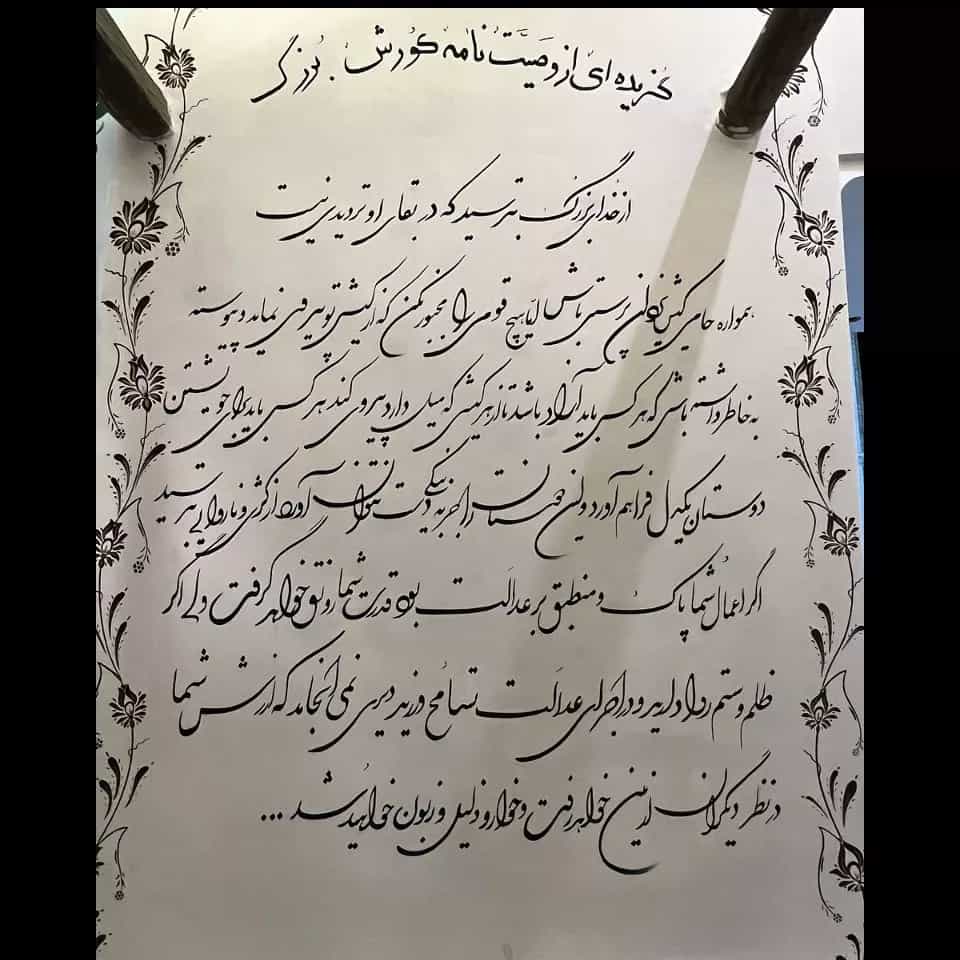 گزیده ای از وصیت نامه کورش بزرگ
از خدای بزرگ بترسید که در بقای او تردیدی نیست
همواره حامی کیش یزدان پرستی باش اما هیچ قومی را مجبور نکن که از کیش تو پیروی نماید و پیوسته
به خاطر داشته باش که هر کسی باید آزاد باشد تا از هر کیشی که میل دارد پیروی کند هر کس باید برای خویشتن
دوستان یکدل فراهم آورد و این دوستان را جز به نیکی بدست نتوان آورد از کژی و ناروایی بترسید
اگر اعمال شما پاک و منطبق بر عدالت بود قدرت شما رونق خواهد گرفت ولی اگر
ظلم و ستم روا دارید و در اجرای عدالت تسامح ورزید دیری نمی انجامد که ارزش شما
در نظر دیگران از بین خواهد رفت و خوار و ذلیل و زبون خواهید شد ...